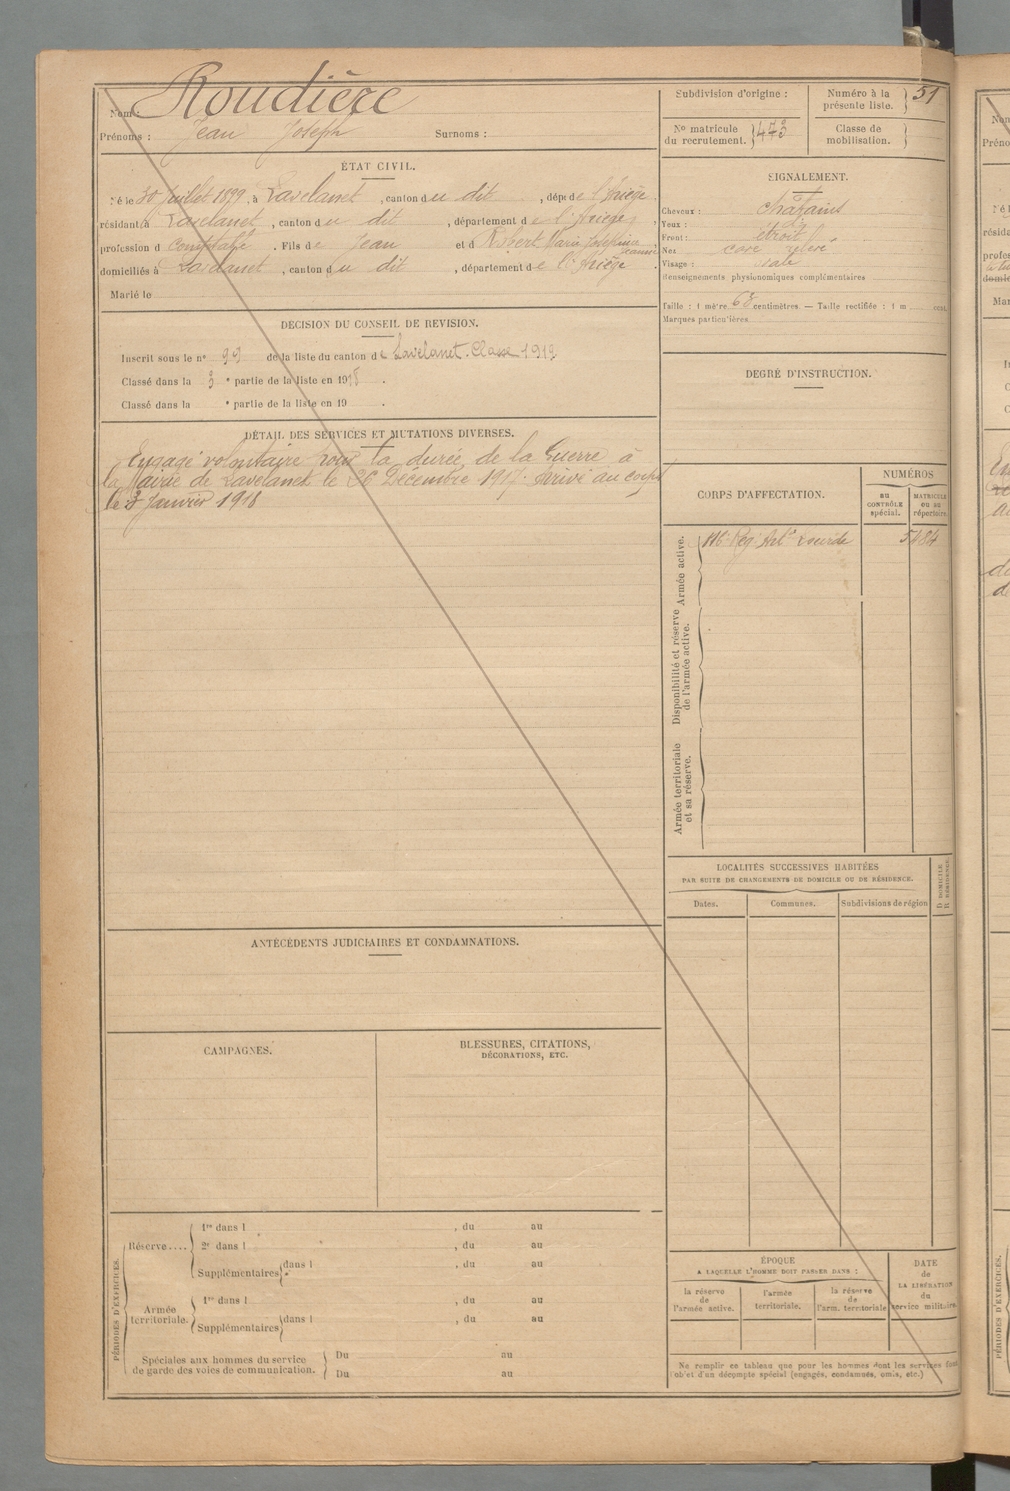 Nom : Roudière
Prénoms : Jean Joseph Surnoms :
ÉTAT CIVIL.
Né le 30 Juillet 1899, à Lavelanet, canton du dit, dépt de l'Ariège,
résidant à Lavelanet, canton du dit, département de l'Ariège,
profession de comptable. Fils de Jean et de Robert Marie Joséphine Jeanne,
domiciliés à Lavelanet, canton du dit, département de l'Ariège.
Marié le
DÉCISION DU CONSEIL DE REVISION.
Inscrit sous le n° 99 de la liste du canton de Lavelanet. Classe 1919
Classé dans la 5 e partie de la liste en 1918.
Classé dans la e partie de la liste en 19 .
DÉTAIL DES SERVICES ET MUTATIONS DIVERSES.
Engagé volontaire pour la durée de la Guerre à
la Mairie de Lavelanet le 26 Décembre 1917. Arrivé au corps
le Janvier 1918
ANTÉCÉDENTS JUDICIAIRES ET CONDAMNATIONS.
CAMPAGNES.
BLESSURES, CITATIONS,
DÉCORATIONS, ETC.
PÉRIODES D'EXERCICES.
Réserve....
1re dans l , du au
2e dans l , du au
Supplémentaires dans l , du au
Armée
territoriale.
1re dans l , du au
Supplémentaires dans l , du au
Spéciales aux hommes du service
de garde des voies de communication.
Du au
Du au
Subdivision d'origine :
Numéro à la
présente liste. 51
No matricule
du recrutement. 473
Classe de
mobilisation.
SIGNALEMENT.
Cheveux : châtains
Yeux :
Front : étroit
Nez cave relevé
Visage : ovale
Renseignements physionomiques complémentaires
Taille : 1 mètre 68 centimètres. — Taille rectifiée : 1 m cent.
Marques particulières
DEGRÉ D'INSTRUCTION.
CORPS D'AFFECTATION.
NUMÉROS
au
CONTRÔLE
spécial.
MATRICULE
ou au
répertoire.
Armée active.
116e Rég. Arti Lourde 5484
Disponibilité et réserve
de l'armée active.
Armée territoriale
et sa réserve.
LOCALITÉS SUCCESSIVES HABITÉES
PAR SUITE DE CHANGEMENTS DE DOMICILE OU DE RÉSIDENCE.
D DOMICILE
R RÉSIDENCE.
Dates. Communes. Subdivisions de région
ÉPOQUE
A LAQUELLE L'HOMME DOIT PASSER DANS :
la réserve
de
l'armée active.
l'armée
territoriale.
la réserve
de
l'arm. territoriale
DATE
de
LA LIBÉRATION
du
service militaire.
Ne remplir ce tableau que pour les hommes dont les services font
l'objet d'un décompte spécial (engagés, condamnés, omis, etc.)